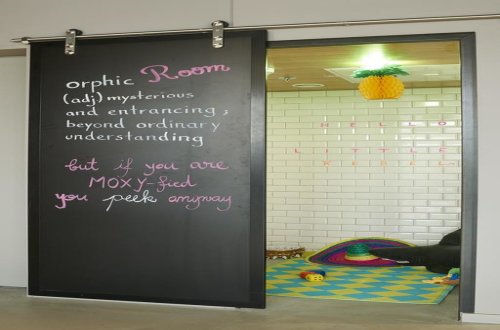 orphic Room
(adj) mysterious
and entrancing,
beyond ordinary
understanding
but if you are
MOXY-fied
you peek anyway
HELLO
LITTLE
REBEL